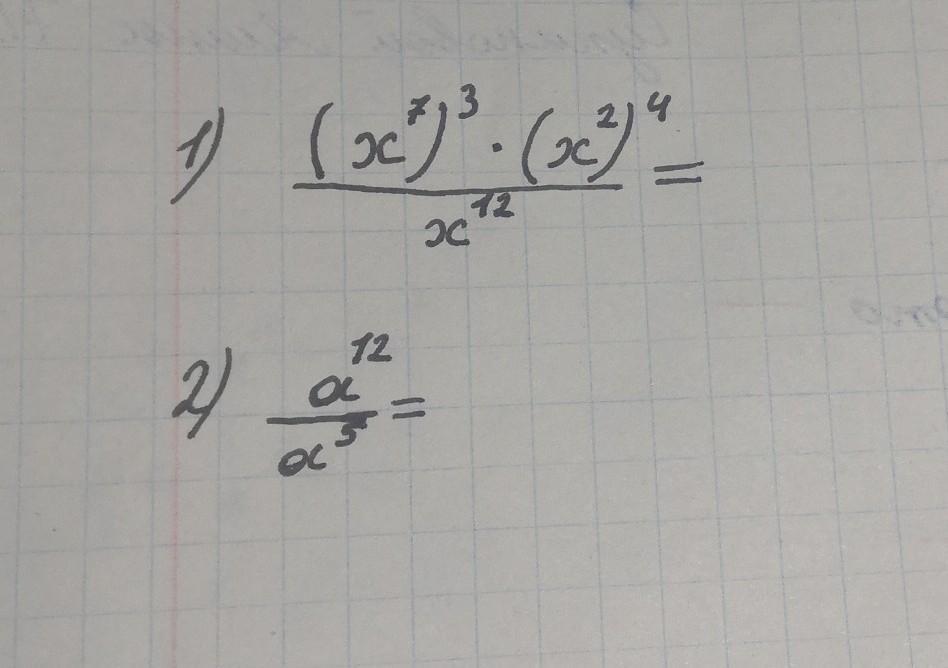 1) \frac{(x^7)^3 \cdot (x^2)^4}{x^{12}} =
2) \frac{a^{12}}{a^5} =